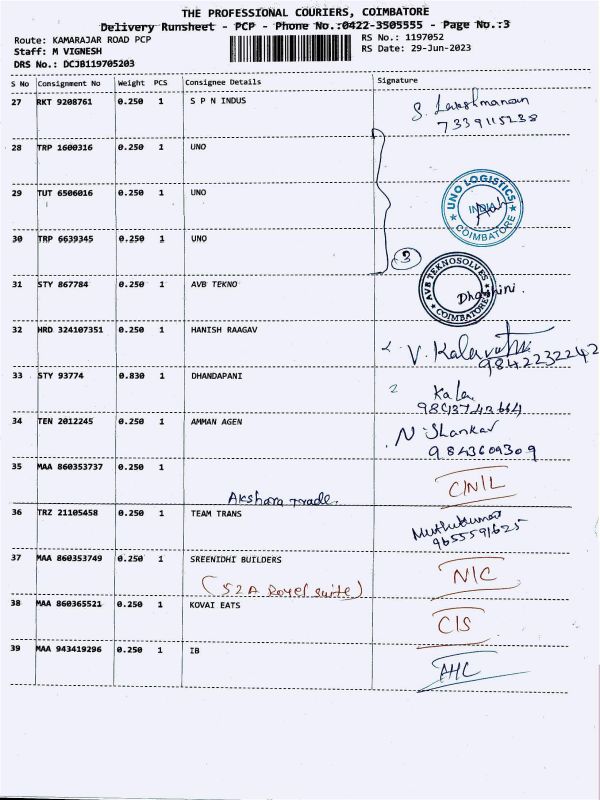 THE PROFESSIONAL COURIERS, COIMBATORE
Delivery Runsheet - PCP - Phone No.:0422-3505555 - Page No.:3
Route: KAMARAJAR ROAD PCP
RS No.: 1197052
Staff: M VIGNESH
RS Date: 29-Jun-2023
DRS No.: DCJB119705203
S No Consignment No Weight PCS Consignee Details Signature
27 RKT 9208761 0.250 1 S P N INDUS S. Lakshmanan
7339115238
28 TRP 1600316 0.250 1 UNO
29 TUT 6506016 0.250 1 UNO UNO LOGISTICS INDIA COIMBATORE
30 TRP 6639345 0.250 1 UNO
3
31 STY 867784 0.250 1 AVB TEKNO AVB TEKNOSOLVES COIMBATORE
Dharshini.
32 HRD 324107351 0.250 1 HANISH RAAGAV V. Kalavathi
9842232242
33 STY 93774 0.830 1 DHANDAPANI Kala
9843743664
34 TEN 2012245 0.250 1 AMMAN AGEN N. Shankar
9843609309
35 MAA 860353737 0.250 1
Akshara Trade. CNIL
36 TRZ 21105458 0.250 1 TEAM TRANS Muthukumar
9655591625
37 MAA 860353749 0.250 1 SREENIDHI BUILDERS N/C
(52A Royel suite)
38 MAA 860365521 0.250 1 KOVAI EATS CIS
39 MAA 943419296 0.250 1 IB AHC